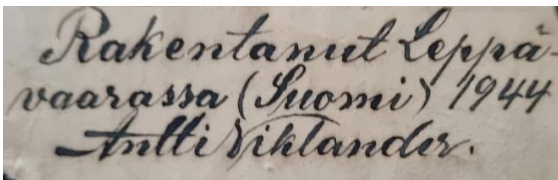 Rakentanut Leppä-
vaarassa (Suomi) 1944
Antti Wiklander.